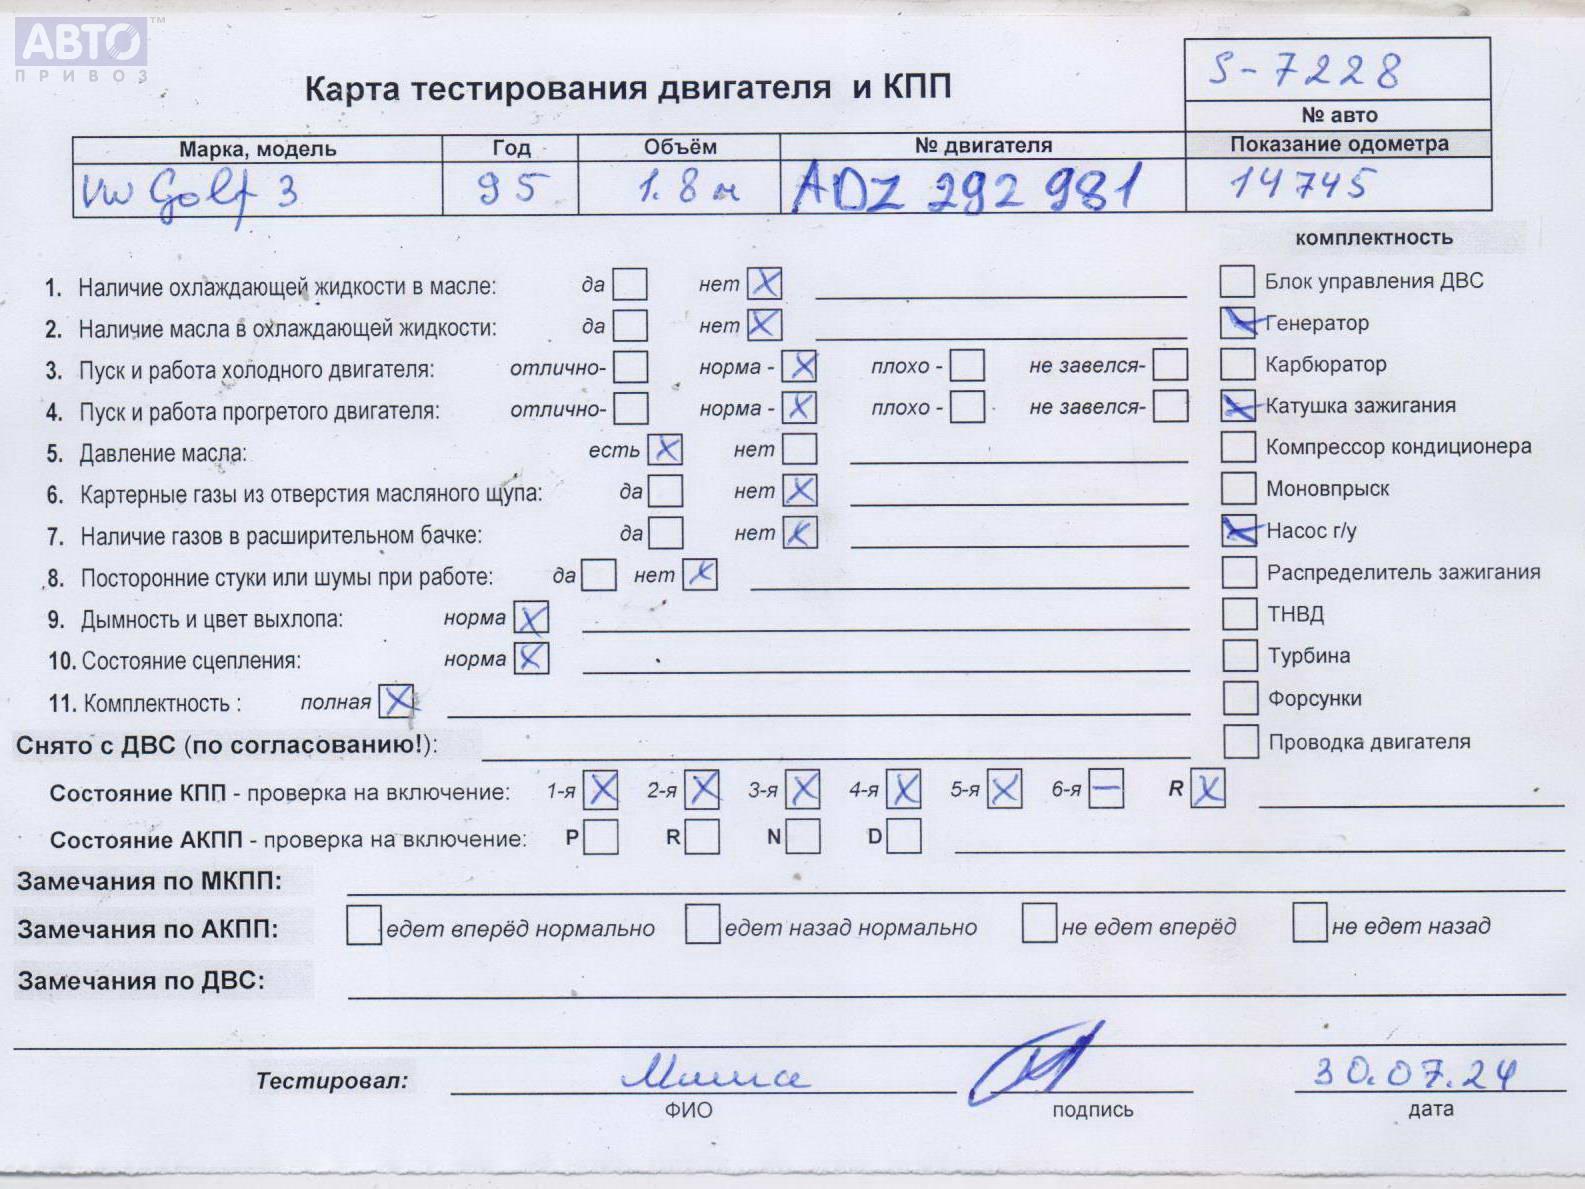 АВТО™
ПРИВОЗ
S-7228
Карта тестирования двигателя и КПП
№ авто
Марка, модель Год Объём № двигателя Показание одометра
VW Golf 3 95 1.8 м ADZ 292 981 14745
комплектность
1. Наличие охлаждающей жидкости в масле: да нет X Блок управления ДВС
2. Наличие масла в охлаждающей жидкости: да нет X Генератор
3. Пуск и работа холодного двигателя: отлично- норма - X плохо - не завелся- Карбюратор
4. Пуск и работа прогретого двигателя: отлично- норма - X плохо - не завелся- Катушка зажигания
5. Давление масла: есть X нет Компрессор кондиционера
6. Картерные газы из отверстия масляного щупа: да нет X Моновпрыск
7. Наличие газов в расширительном бачке: да нет X Насос г/у
8. Посторонние стуки или шумы при работе: да нет X Распределитель зажигания
9. Дымность и цвет выхлопа: норма X ТНВД
10. Состояние сцепления: норма X Турбина
11. Комплектность : полная X Форсунки
Снято с ДВС (по согласованию!): Проводка двигателя
Состояние КПП - проверка на включение: 1-я X 2-я X 3-я X 4-я X 5-я X 6-я — R X
Состояние АКПП - проверка на включение: P R N D
Замечания по МКПП:
Замечания по АКПП: едет вперёд нормально едет назад нормально не едет вперёд не едет назад
Замечания по ДВС:
Тестировал: Миша 30.07.24
ФИО подпись дата